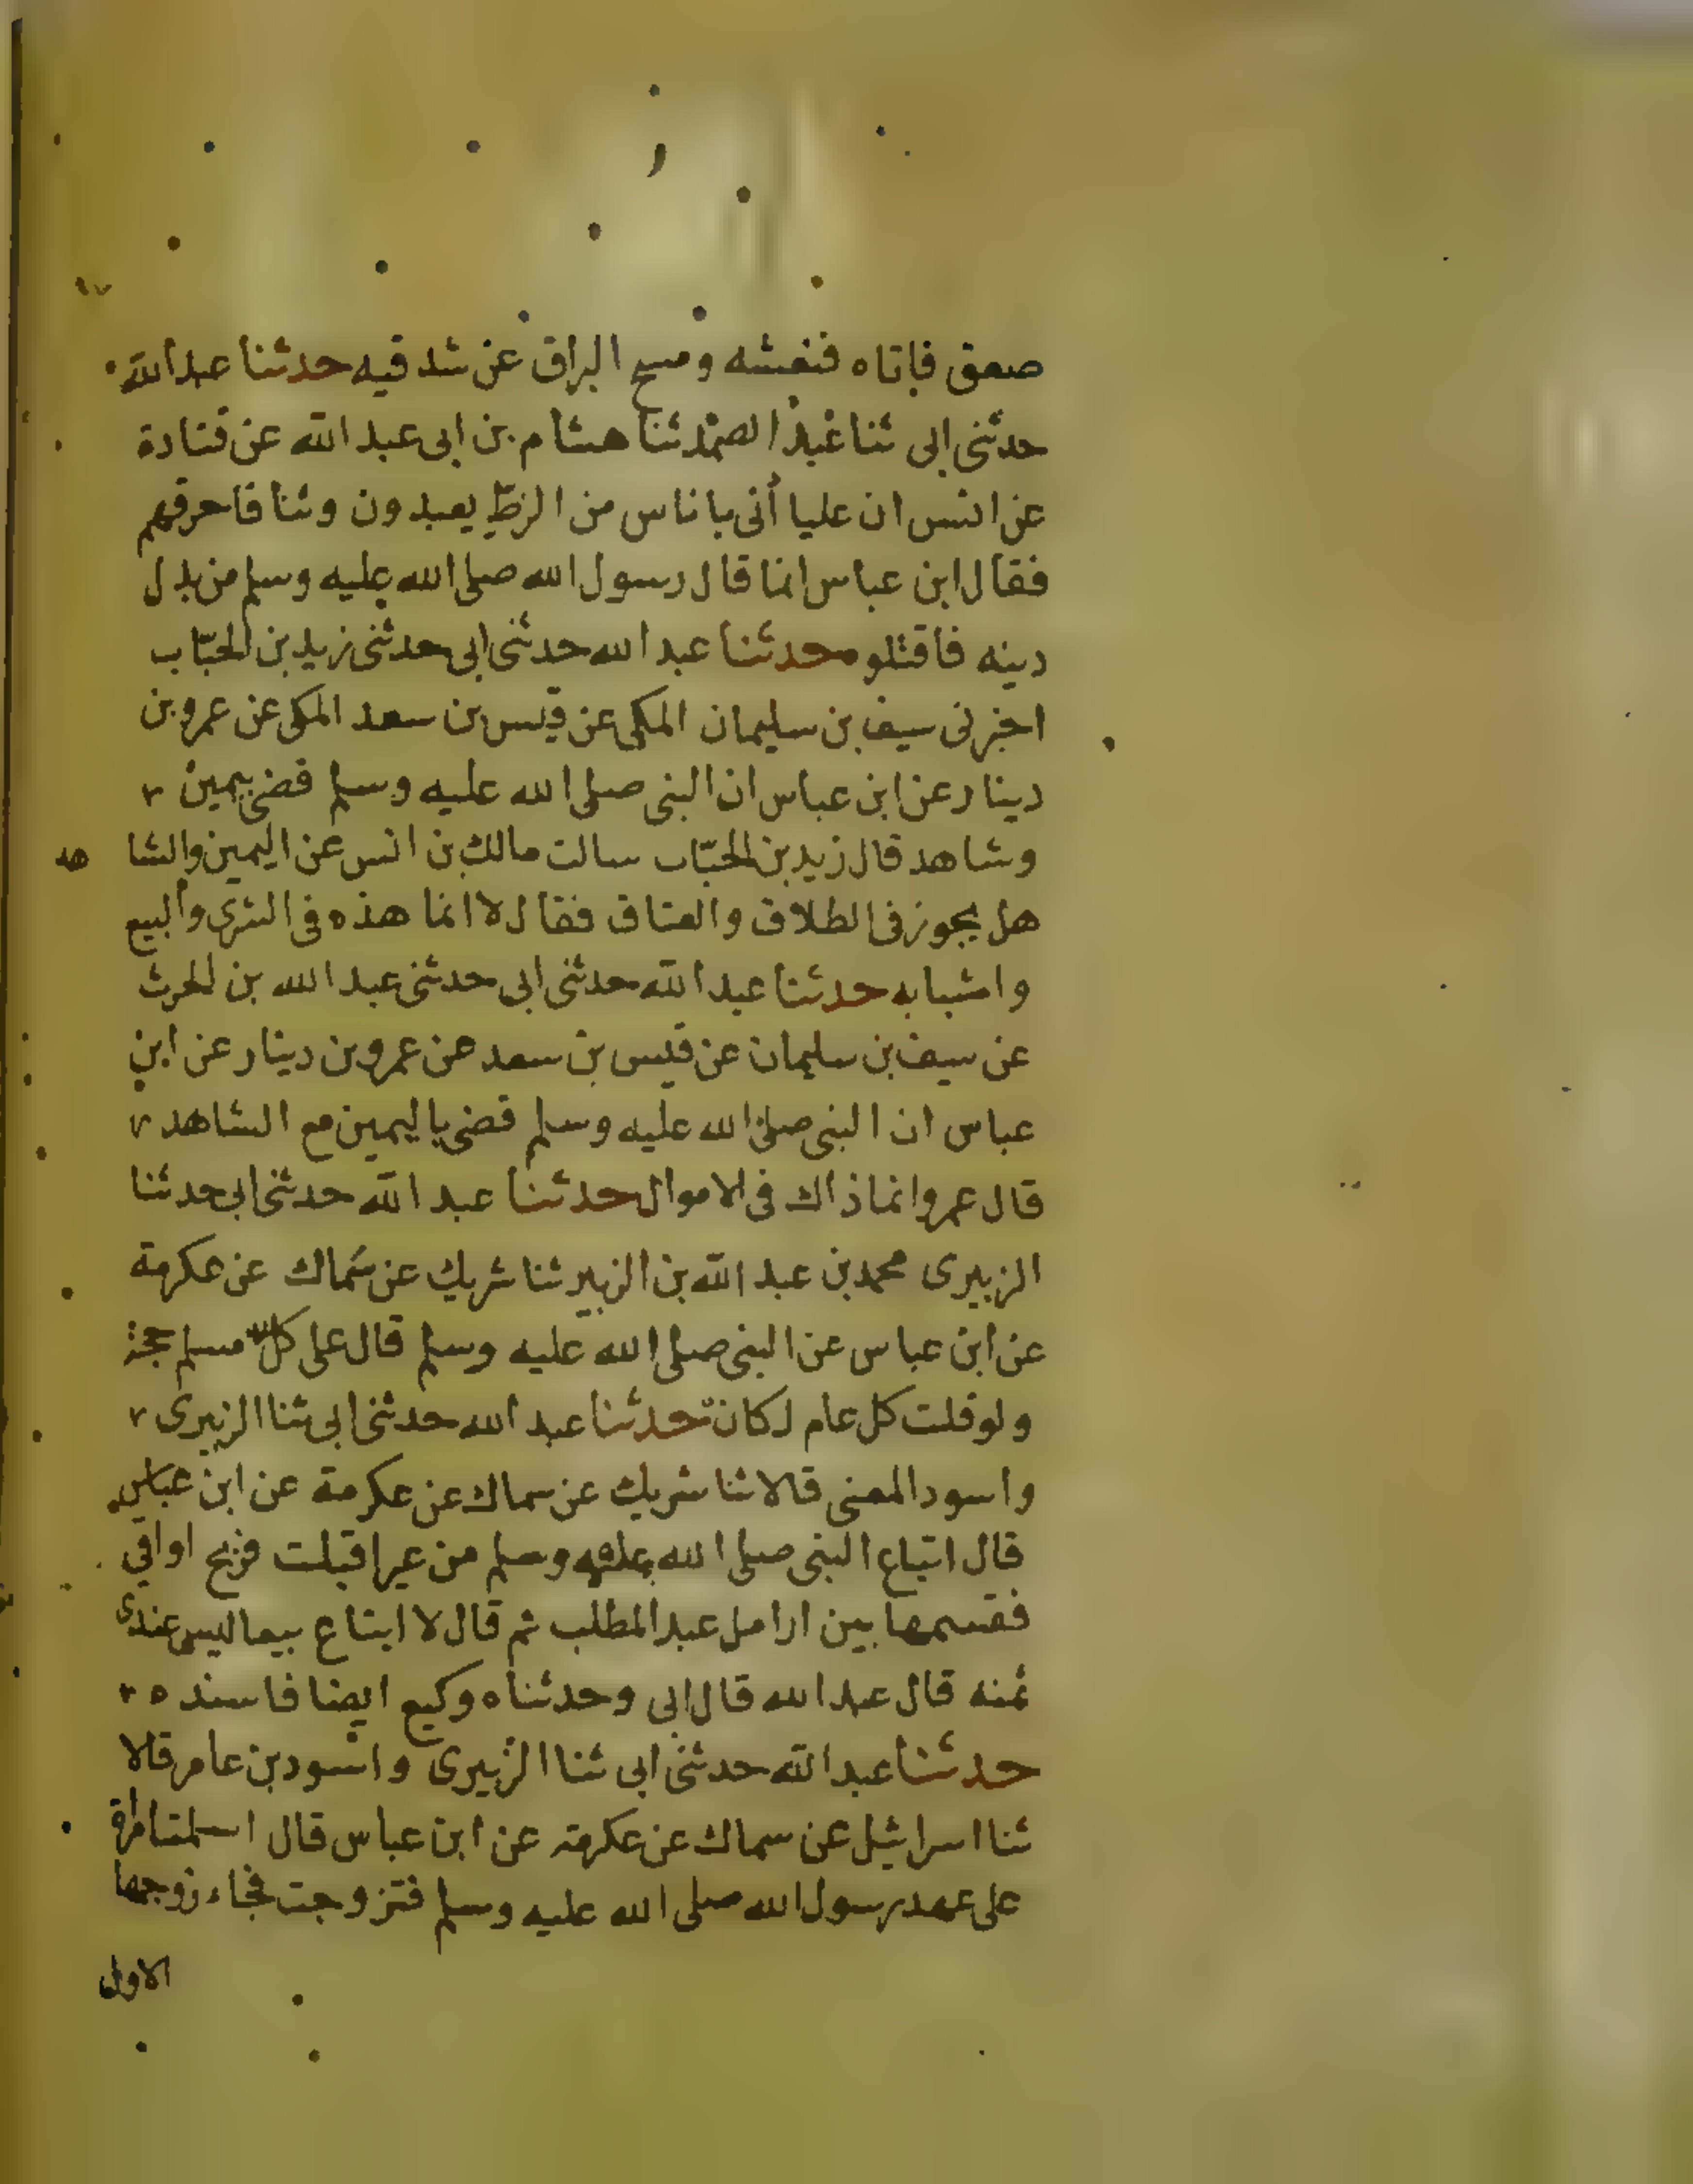 صعق فاتاه فنعشه ومسح البزاق عن شدقيه حدثنا عبد الله
حدثني ابي ثنا عبد الصمد ثنا هشام بن ابي عبد الله عن قتادة
عن انس ان عليا أتى باناس من الزطّ يعبدون وثنا فاحرقهم
فقال ابن عباس انما قال رسول الله صلى الله عليه وسلم من بدل
دينه فاقتلوه حدثنا عبد الله حدثني ابي حدثني زيد بن الحبّاب
اخبرني سيف بن سليمان المكى عن قيس بن سعد المكى عن عمرو بن
دينار عن ابن عباس ان النبى صلى الله عليه وسلم قضى بيمين
وشاهد قال زيد بن الحبّاب سالت مالك بن انس عن اليمين والشا هد
هل يجوز فى الطلاق والعتاق فقال لا انما هذه فى الشرى والبيع
واشبابه حدثنا عبد الله حدثني ابي حدثني عبد الله بن الحرث
عن سيف بن سليمان عن قيس بن سعد عن عمرو بن دينار عن ابن
عباس ان النبى صلى الله عليه وسلم قضى باليمين مع الشاهد
قال عمرو انما ذاك فى الاموال حدثنا عبد الله حدثني ابي حدثنا
الزبيرى محمد بن عبد الله بن الزبير ثنا شريك عن سماك عن عكرمة
عن ابن عباس عن النبى صلى الله عليه وسلم قال على كل مسلم حجة
ولو قلت كل عام لكان حدثنا عبد الله حدثني ابي ثنا الزبيرى
واسود المعنى قالا ثنا شريك عن سماك عن عكرمة عن ابن عباس
قال ابتاع النبى صلى الله عليه وسلم من عير اقبلت فربح اواقي
فقسمها بين ارامل عبد المطلب ثم قال لا ابتاع بيعا ليس عندى
ثمنه قال عبد الله قال ابي وحدثناه وكيع ايضا فاسنده
حدثنا عبد الله حدثني ابي ثنا الزبيرى واسود بن عامر قالا
ثنا اسرائيل عن سماك عن عكرمة عن ابن عباس قال اسلمت امراة
على عهد رسول الله صلى الله عليه وسلم فتزوجت فجاء زوجها
الاول